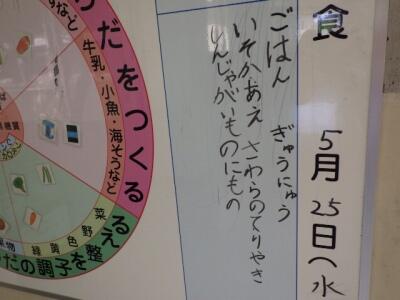 食
5月25日(水
ごはん ぎゅうにゅう
いそかあえ さわらのてりやき
しんじゃがいものにもの
だをつくる
牛乳・小魚・海そうなど
など
るえ
だの調子を整
緑黄色野菜
果物